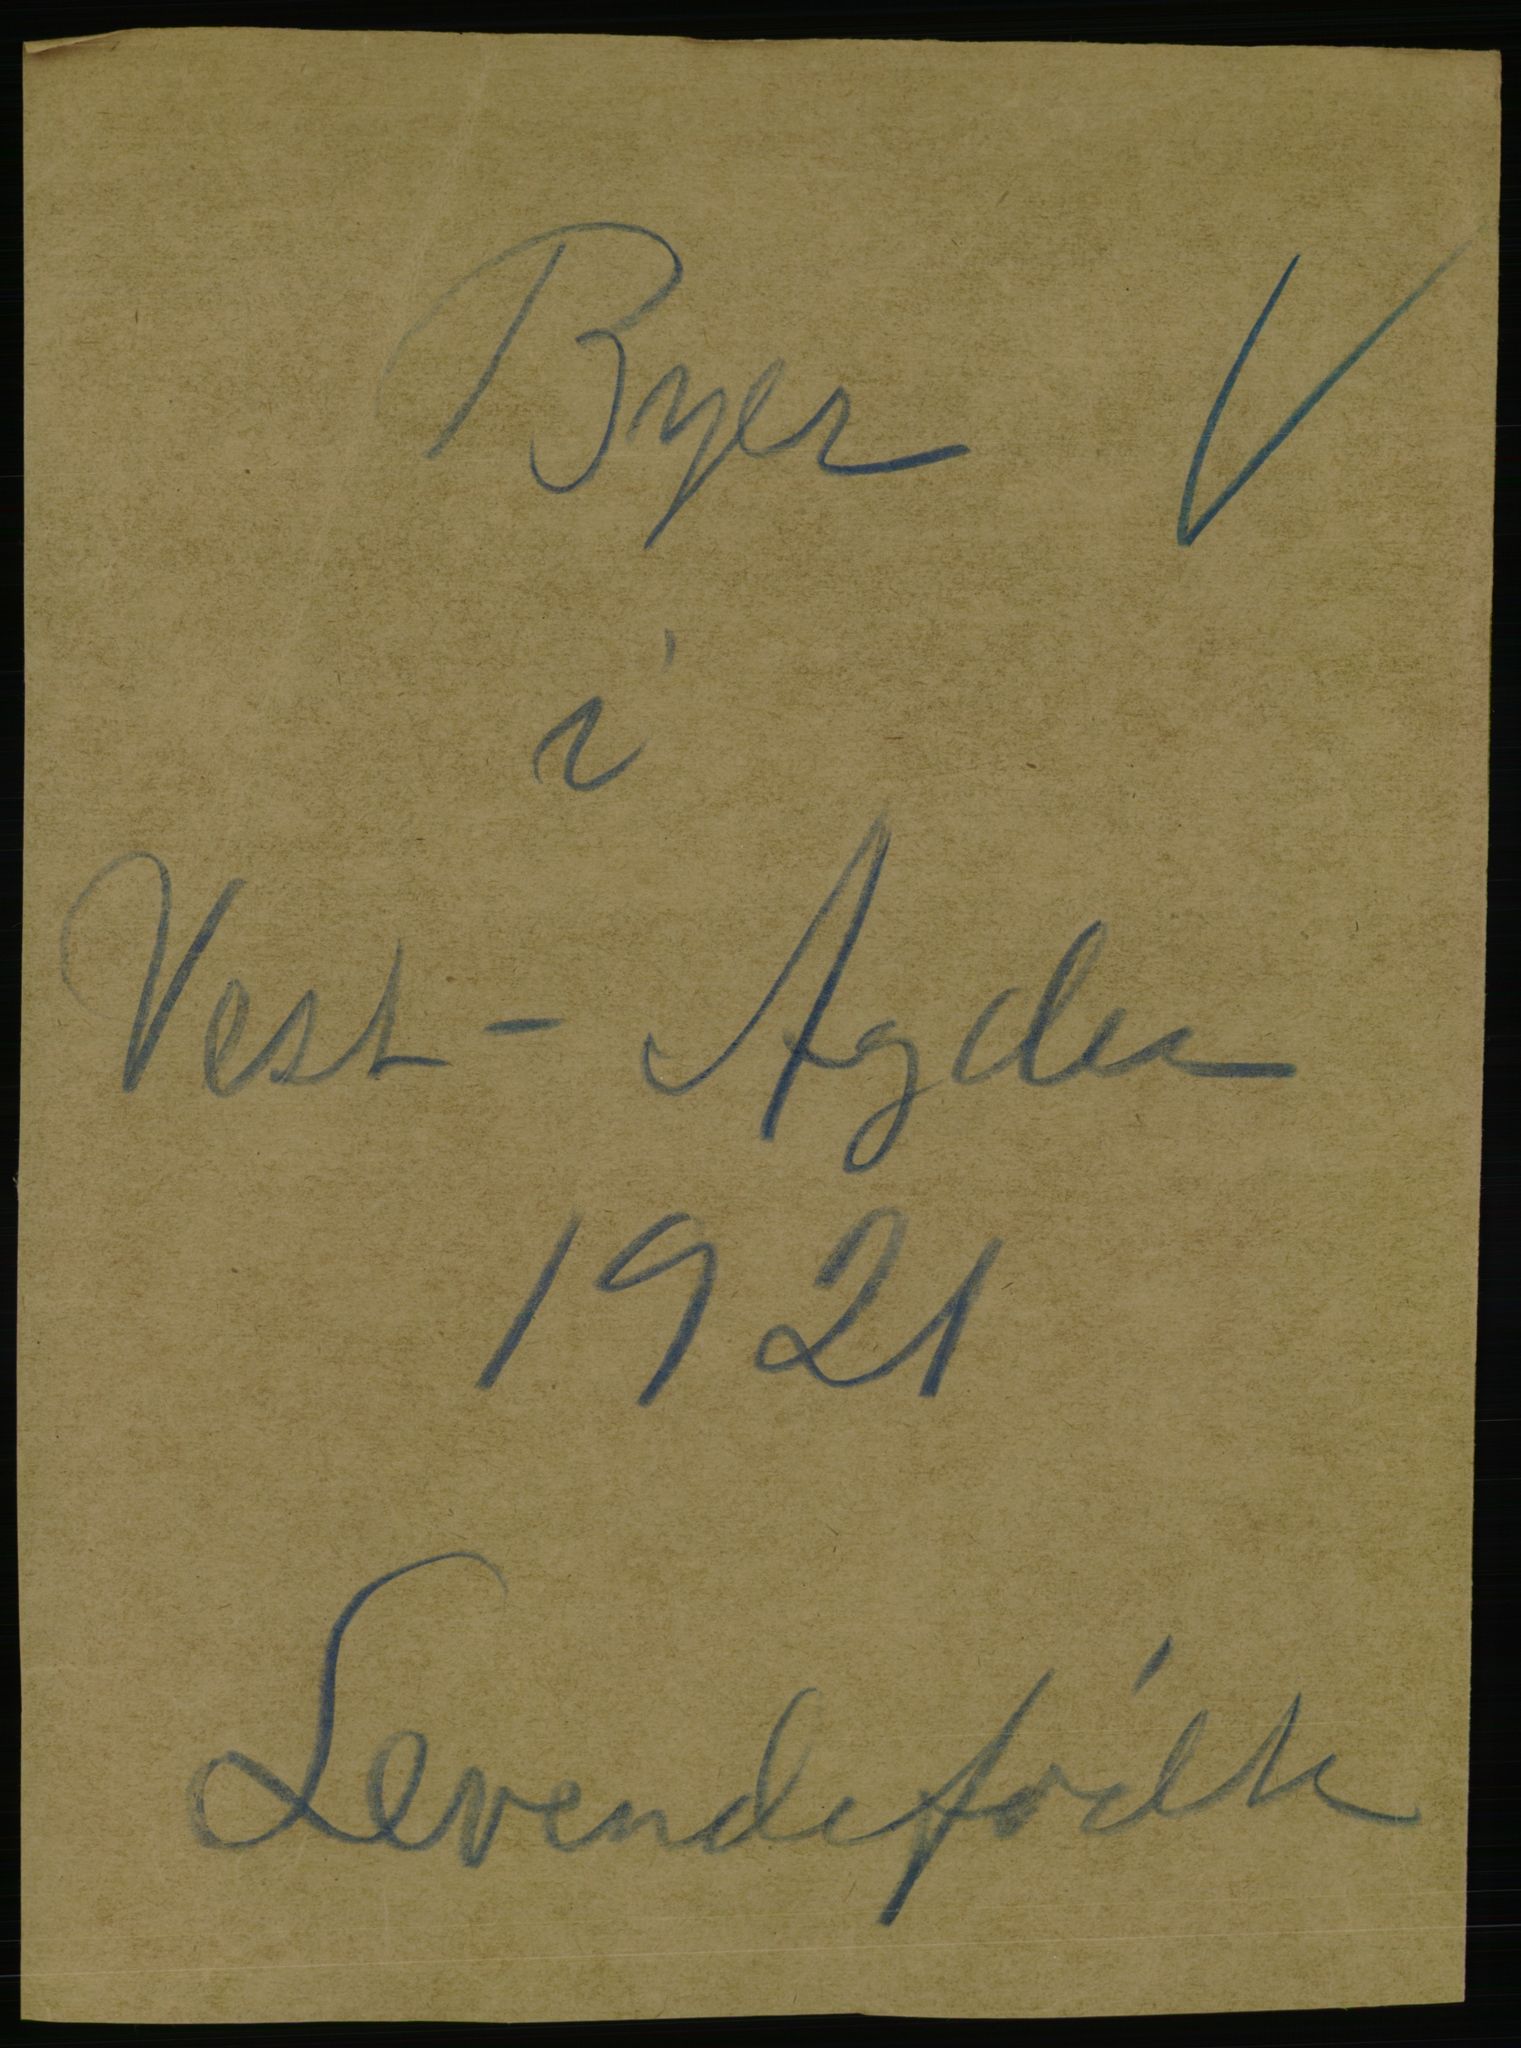 Byer V
i
Vest-Agder
1921
Levendefødte